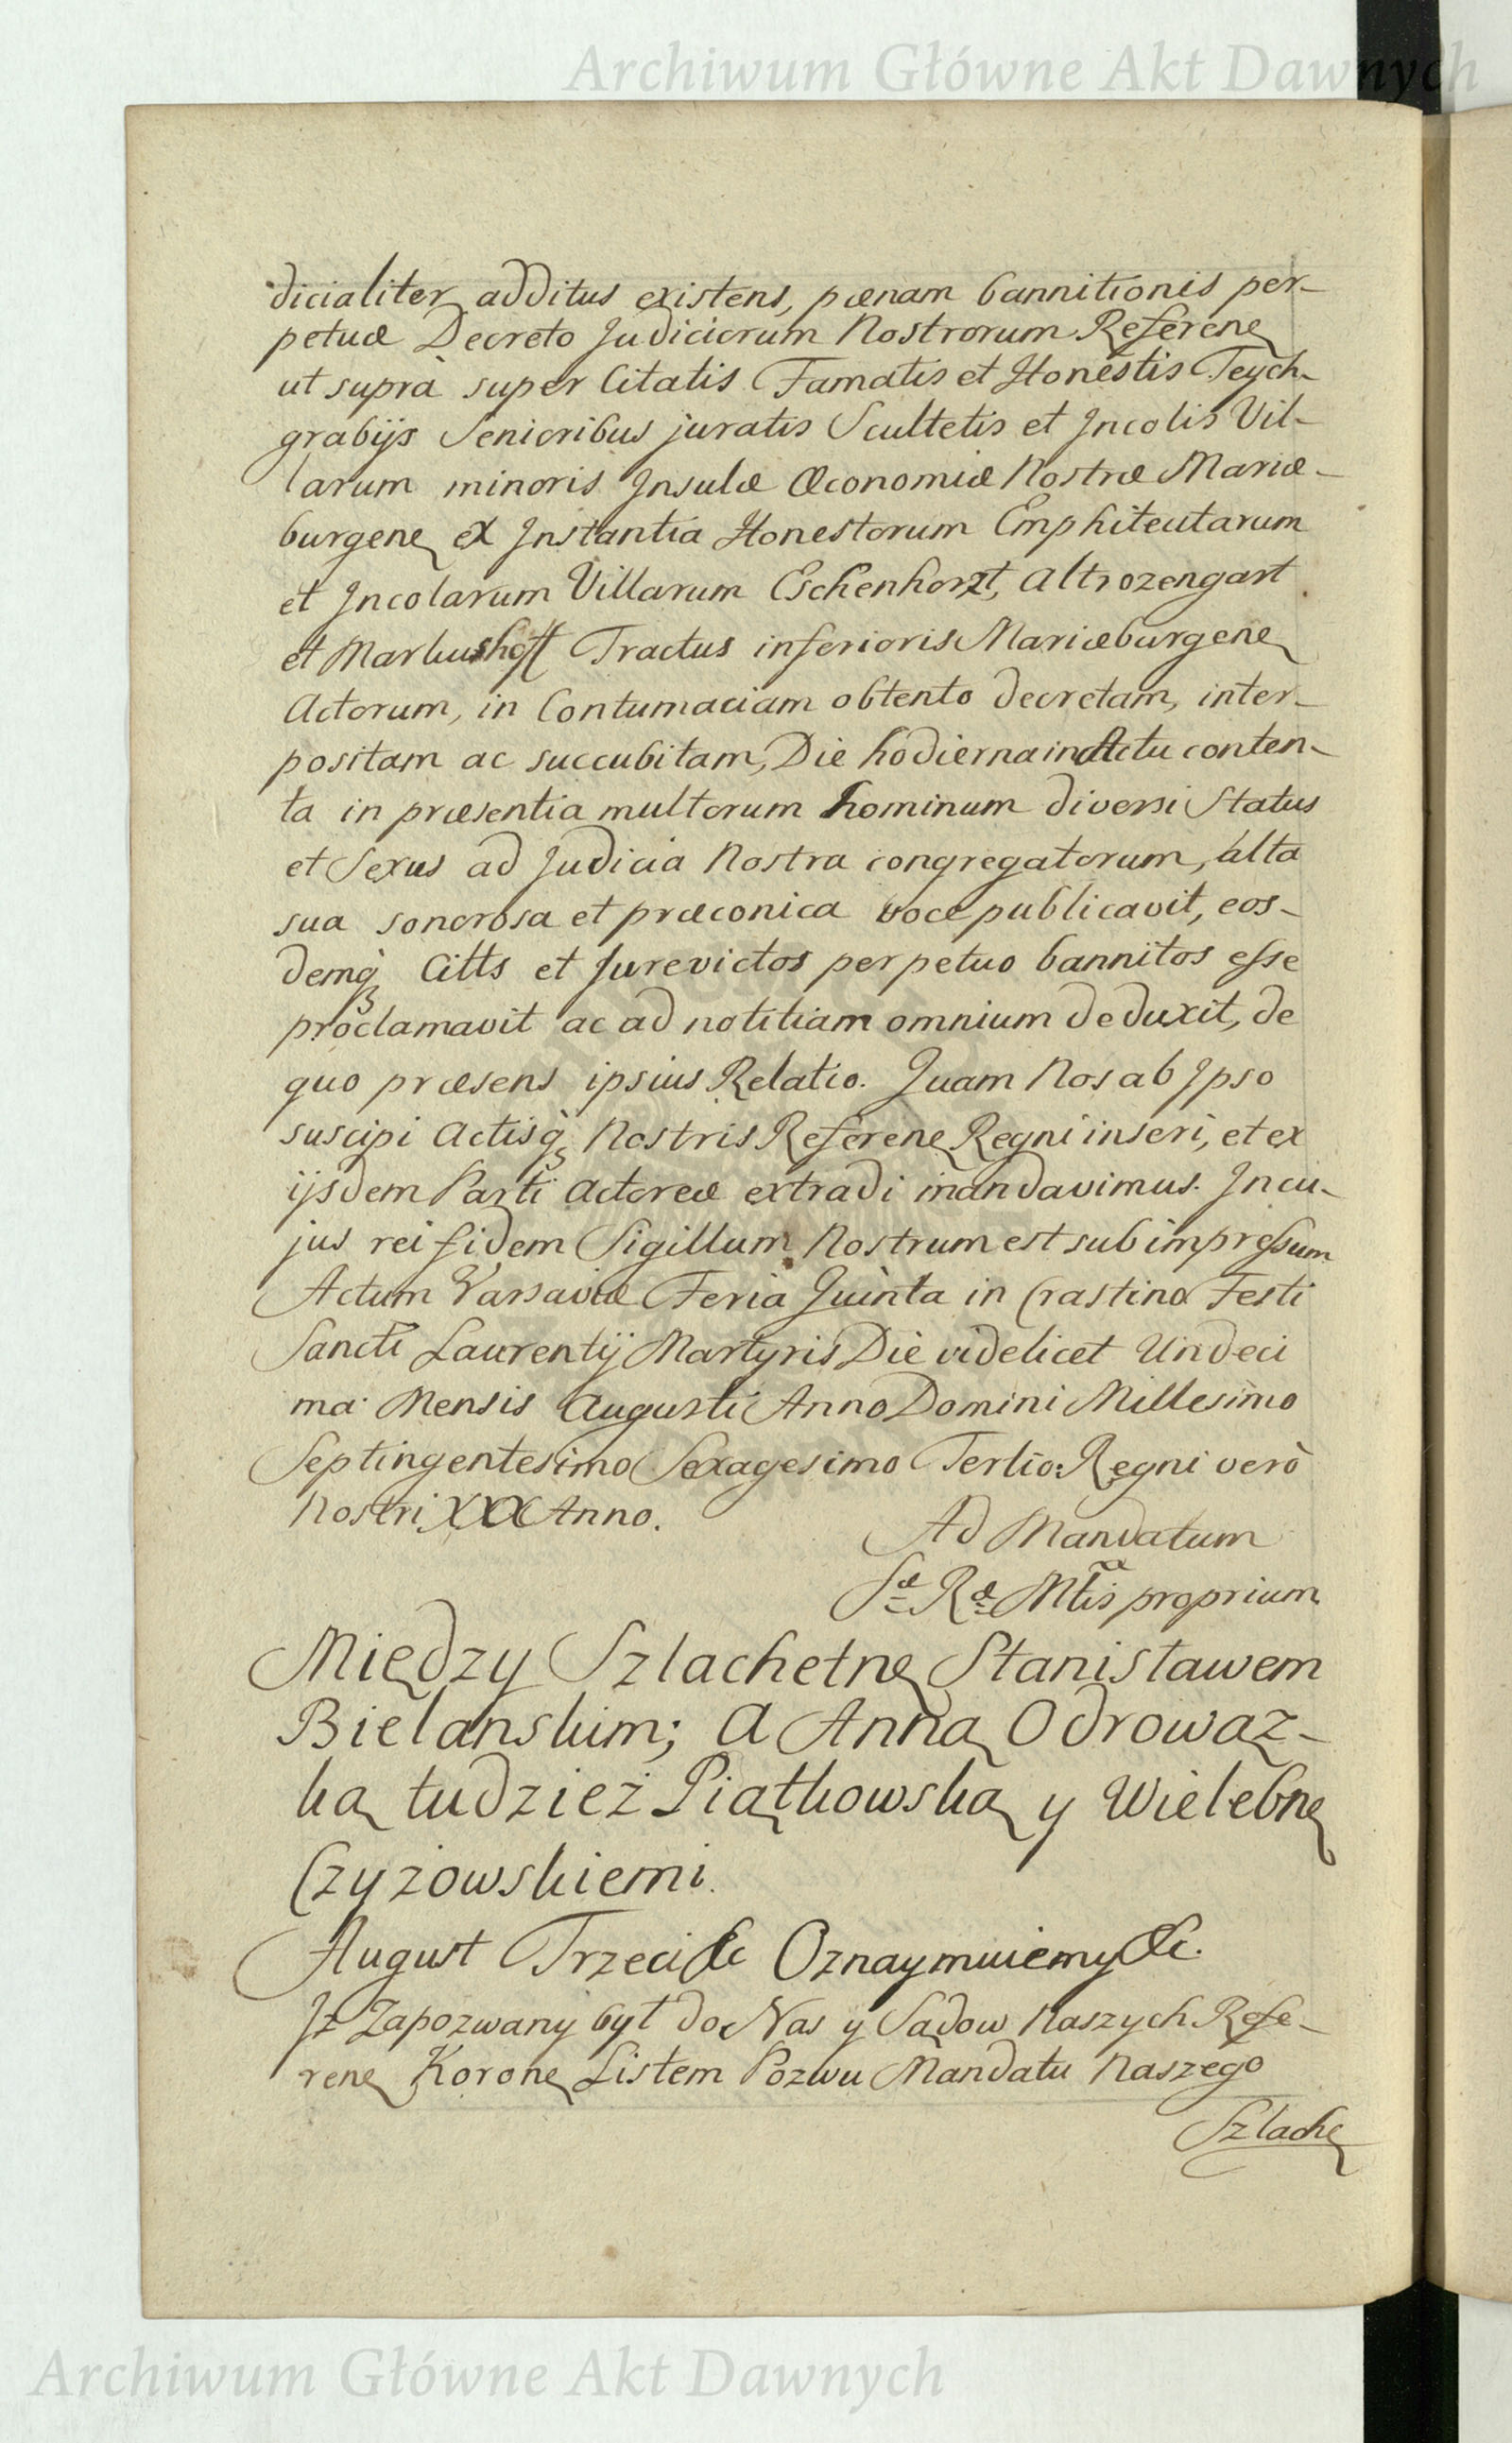 Archiwum Główne Akt Dawnych
dicialiter additus existens, pœnam bannitionis per-
petuæ Decreto Judiciorum Nostrorum Referen
ut suprà super Citatis Famatis et Honestis Teych-
grabijs Senioribus juratis Scultetis et Incolis Vil-
larum minoris Insulæ Œconomiæ Nostræ Mariæ-
burgen ex Instantia Honestorum Emphiteutarum
et Incolarum Villarum Eschenhorzt, Altrozengart
et Markushoff Tractus inferioris Mariæburgen
Actorum, in Contumaciam obtento decretam, inter-
positam ac succubitam, Die hodierna in Actu conten-
ta in præsentia multorum hominum diversi Status
et Sexus ad Judicia Nostra congregatorum, alta
sua sonorosa et præconica voce publicavit, eos-
demq Citts et Jurevictos perpetuo bannitos esse
proclamavit ac ad notitiam omnium deduxit, de
quo præsens ipsius Relatio. Quam Nos ab Ipso
suscipi Actisq Nostris Referen Regni inseri, et ex
ijsdem Parti Actoreæ extradi mandavimus. In cu-
jus rei fidem Sigillum Nostrum est subimpressum.
Actum Varsaviæ Feria Quinta in Crastino Festi
Sancti Laurentij Martyris Die videlicet Undeci
ma Mensis Augusti Anno Domini Millesimo
Septingentesimo Sexagesimo Tertio: Regni verò
Nostri XXX Anno.
Ad Mandatum
Sæ Ræ Mttis proprium
Między Szlachetne Stanisławem
Bielanskim; a Anną Odrowąz-
ką tudzież Piątkowską y Wielebne
Czyżowskiemi.
August Trzeci &c Oznaymuiemy &c.
Jż Zapozwany był do Nas y Sądow Naszych Refe-
ren Koron Listem Pozwu Mandatu Naszego
Szlache
Archiwum Główne Akt Dawnych